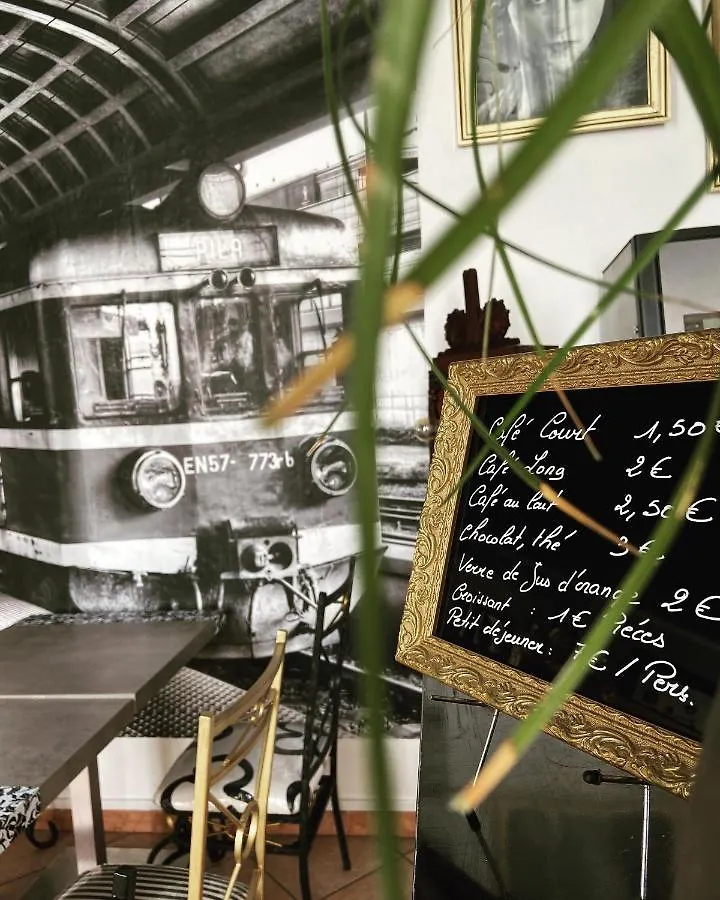 PIŁA
EN57- 773rb
Café Court 1,50€
Café Long 2€
Café au lait 2,50€
Chocolat, thé 3€
Verre de Jus d'orange 2€
Croissant : 1€ Pièces
Petit déjeuner: 7€ / Pers.